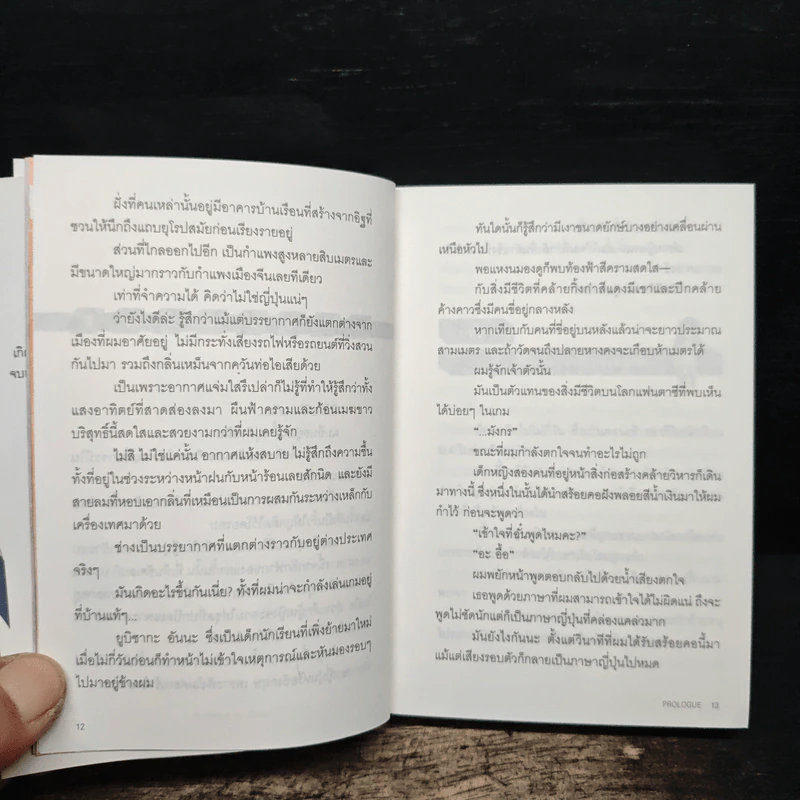 เกิด
จบบ
ฝั่งที่คนเหล่านั้นอยู่มีอาคารบ้านเรือนที่สร้างจากอิฐที่
ชวนให้นึกถึงแถบยุโรปสมัยก่อนเรียงรายอยู่
ส่วนที่ไกลออกไปอีก เป็นกำแพงสูงหลายสิบเมตรและ
มีขนาดใหญ่มากราวกับกำแพงเมืองจีนเลยทีเดียว
เท่าที่จำความได้ คิดว่าไม่ใช่ญี่ปุ่นแน่ๆ
ว่ายังไงดีล่ะ รู้สึกว่าแม้แต่บรรยากาศก็ยังแตกต่างจาก
เมืองที่ผมอาศัยอยู่ ไม่มีกระทั่งเสียงรถไฟหรือรถยนต์ที่วิ่งสวน
กันไปมา รวมถึงกลิ่นเหม็นจากควันท่อไอเสียด้วย
เป็นเพราะอากาศแจ่มใสรึเปล่าก็ไม่รู้ที่ทำให้รู้สึกว่าทั้ง
แสงอาทิตย์ที่สาดส่องลงมา ผืนฟ้าครามและก้อนเมฆขาว
บริสุทธิ์นี้สดใสและสวยงามกว่าที่ผมเคยรู้จัก
ไม่สิ ไม่ใช่แค่นั้น อากาศแห้งสบาย ไม่รู้สึกถึงความชื้น
ทั้งที่อยู่ในช่วงระหว่างหน้าฝนกับหน้าร้อนเลยสักนิด และยังมี
สายลมที่หอบเอากลิ่นที่เหมือนเป็นการผสมกันระหว่างเหล็กกับ
เครื่องเทศมาด้วย
ช่างเป็นบรรยากาศที่แตกต่างราวกับอยู่ต่างประเทศ
จริงๆ
มันเกิดอะไรขึ้นกันเนี่ย? ทั้งที่ผมน่าจะกำลังเล่นเกมอยู่
ที่บ้านแท้ๆ...
ยูบิซากะ อันนะ ซึ่งเป็นเด็กนักเรียนที่เพิ่งย้ายมาใหม่
เมื่อไม่กี่วันก่อนก็ทำหน้าไม่เข้าใจเหตุการณ์และหันมองรอบๆ
ไปมาอยู่ข้างผม
12
ทันใดนั้นก็รู้สึกว่ามีเงาขนาดยักษ์บางอย่างเคลื่อนผ่าน
เหนือหัวไป
พอแหงนมองดูก็พบท้องฟ้าสีครามสดใส—
กับสิ่งมีชีวิตที่คล้ายกิ้งก่าสีแดงมีเขาและปีกคล้าย
ค้างคาวซึ่งมีคนขี่อยู่กลางหลัง
หากเทียบกับคนที่ขี่อยู่บนหลังแล้วน่าจะยาวประมาณ
สามเมตร และถ้าวัดจนถึงปลายหางคงจะเกือบห้าเมตรได้
ผมรู้จักเจ้าตัวนั้น
มันเป็นตัวแทนของสิ่งมีชีวิตบนโลกแฟนตาซีที่พบเห็น
ได้บ่อยๆ ในเกม
“...มังกร”
ขณะที่ผมกำลังตกใจจนทำอะไรไม่ถูก
เด็กหญิงสองคนที่อยู่หน้าสิ่งก่อสร้างคล้ายวิหารก็เดิน
มาทางนี้ ซึ่งหนึ่งในนั้นได้นำสร้อยคอฝังพลอยสีน้ำเงินมาให้ผม
กำไว้ ก่อนจะพูดว่า
“เข้าใจที่ฉันพูดไหมคะ?”
“อะ อื้อ”
ผมพยักหน้าพูดตอบกลับไปด้วยน้ำเสียงตกใจ
เธอพูดด้วยภาษาที่ผมสามารถเข้าใจได้ไม่ผิดแน่ ถึงจะ
พูดไม่ชัดนักแต่ก็เป็นภาษาญี่ปุ่นที่คล่องแคล่วมาก
มันยังไงกันนะ ตั้งแต่วินาทีที่ผมได้รับสร้อยคอนี้มา
แม้แต่เสียงรอบตัวก็กลายเป็นภาษาญี่ปุ่นไปหมด
PROLOGUE 13